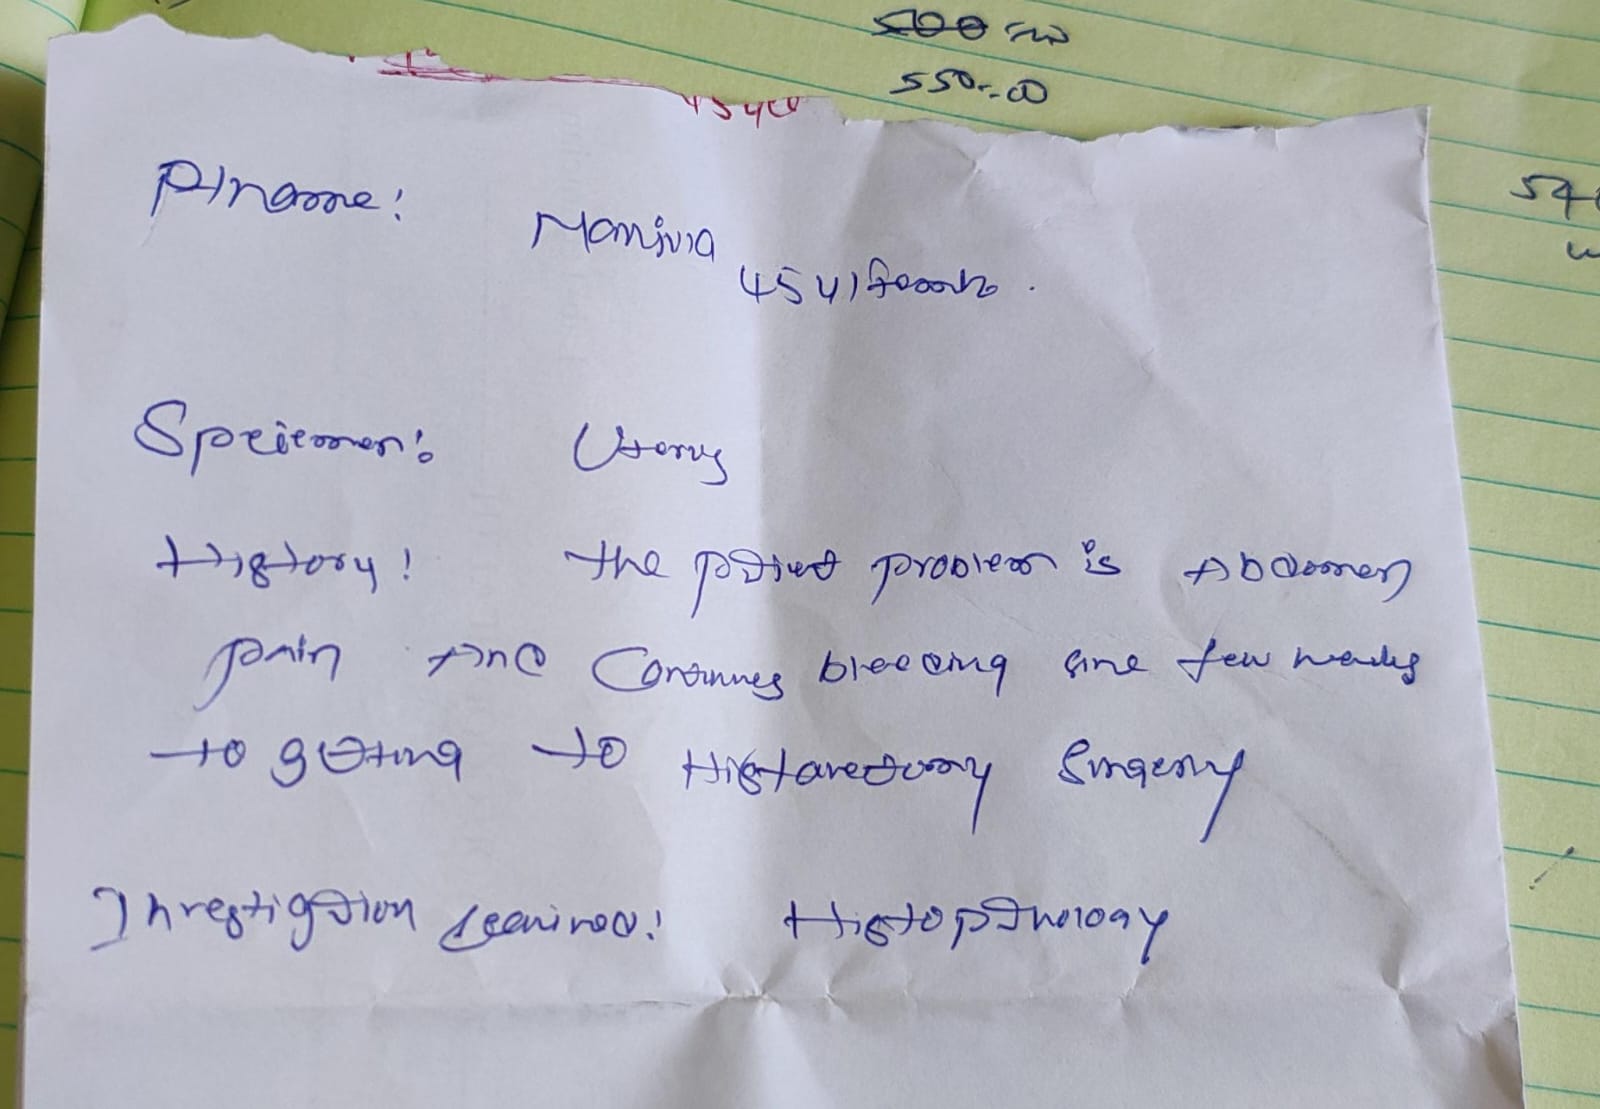 500
550.00
P/name:
Manjula
45 y/female.
Specimen: Uterus
History: the patient problem is Abdomen
pain And Continues bleeding sine few weeks
to getting to Histarectomy Surgery
Investigation required: Histopathology